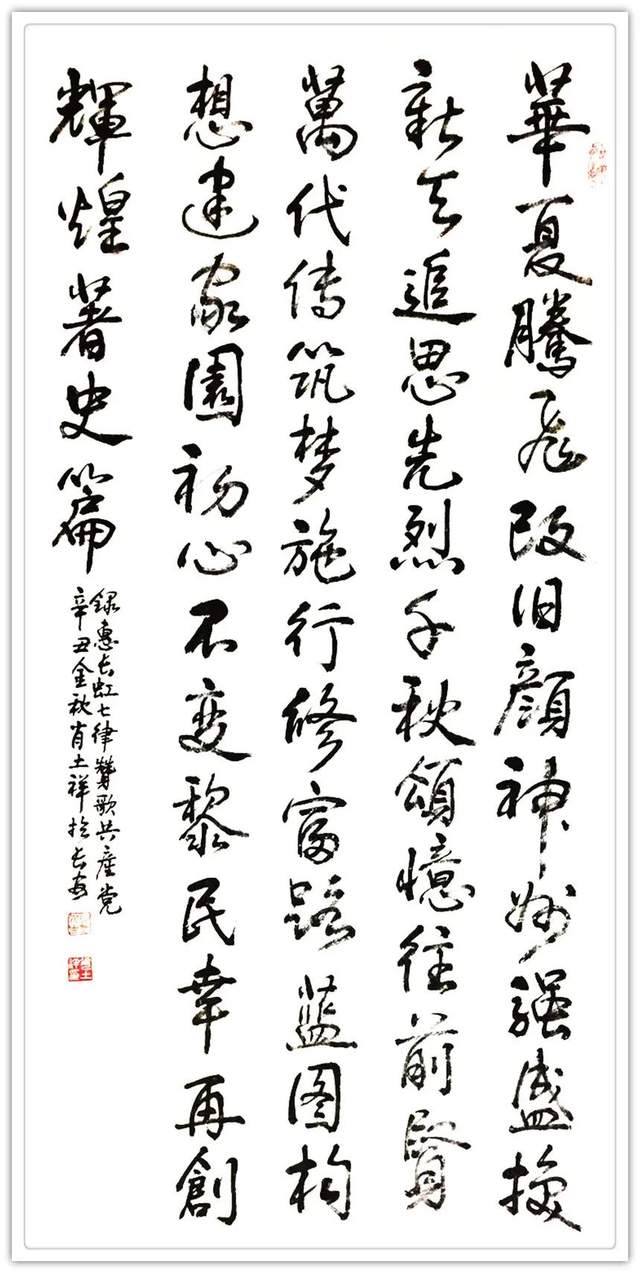 華夏騰飛改旧顔神州强盛换
新天追思先烈千秋頌憶往前賢
萬代传筑梦施行修富路蓝图构
想建家園初心不变黎民幸再創
輝煌著史篇
録惠长虹七律赞歌共産党
辛丑金秋肖土祥於长安